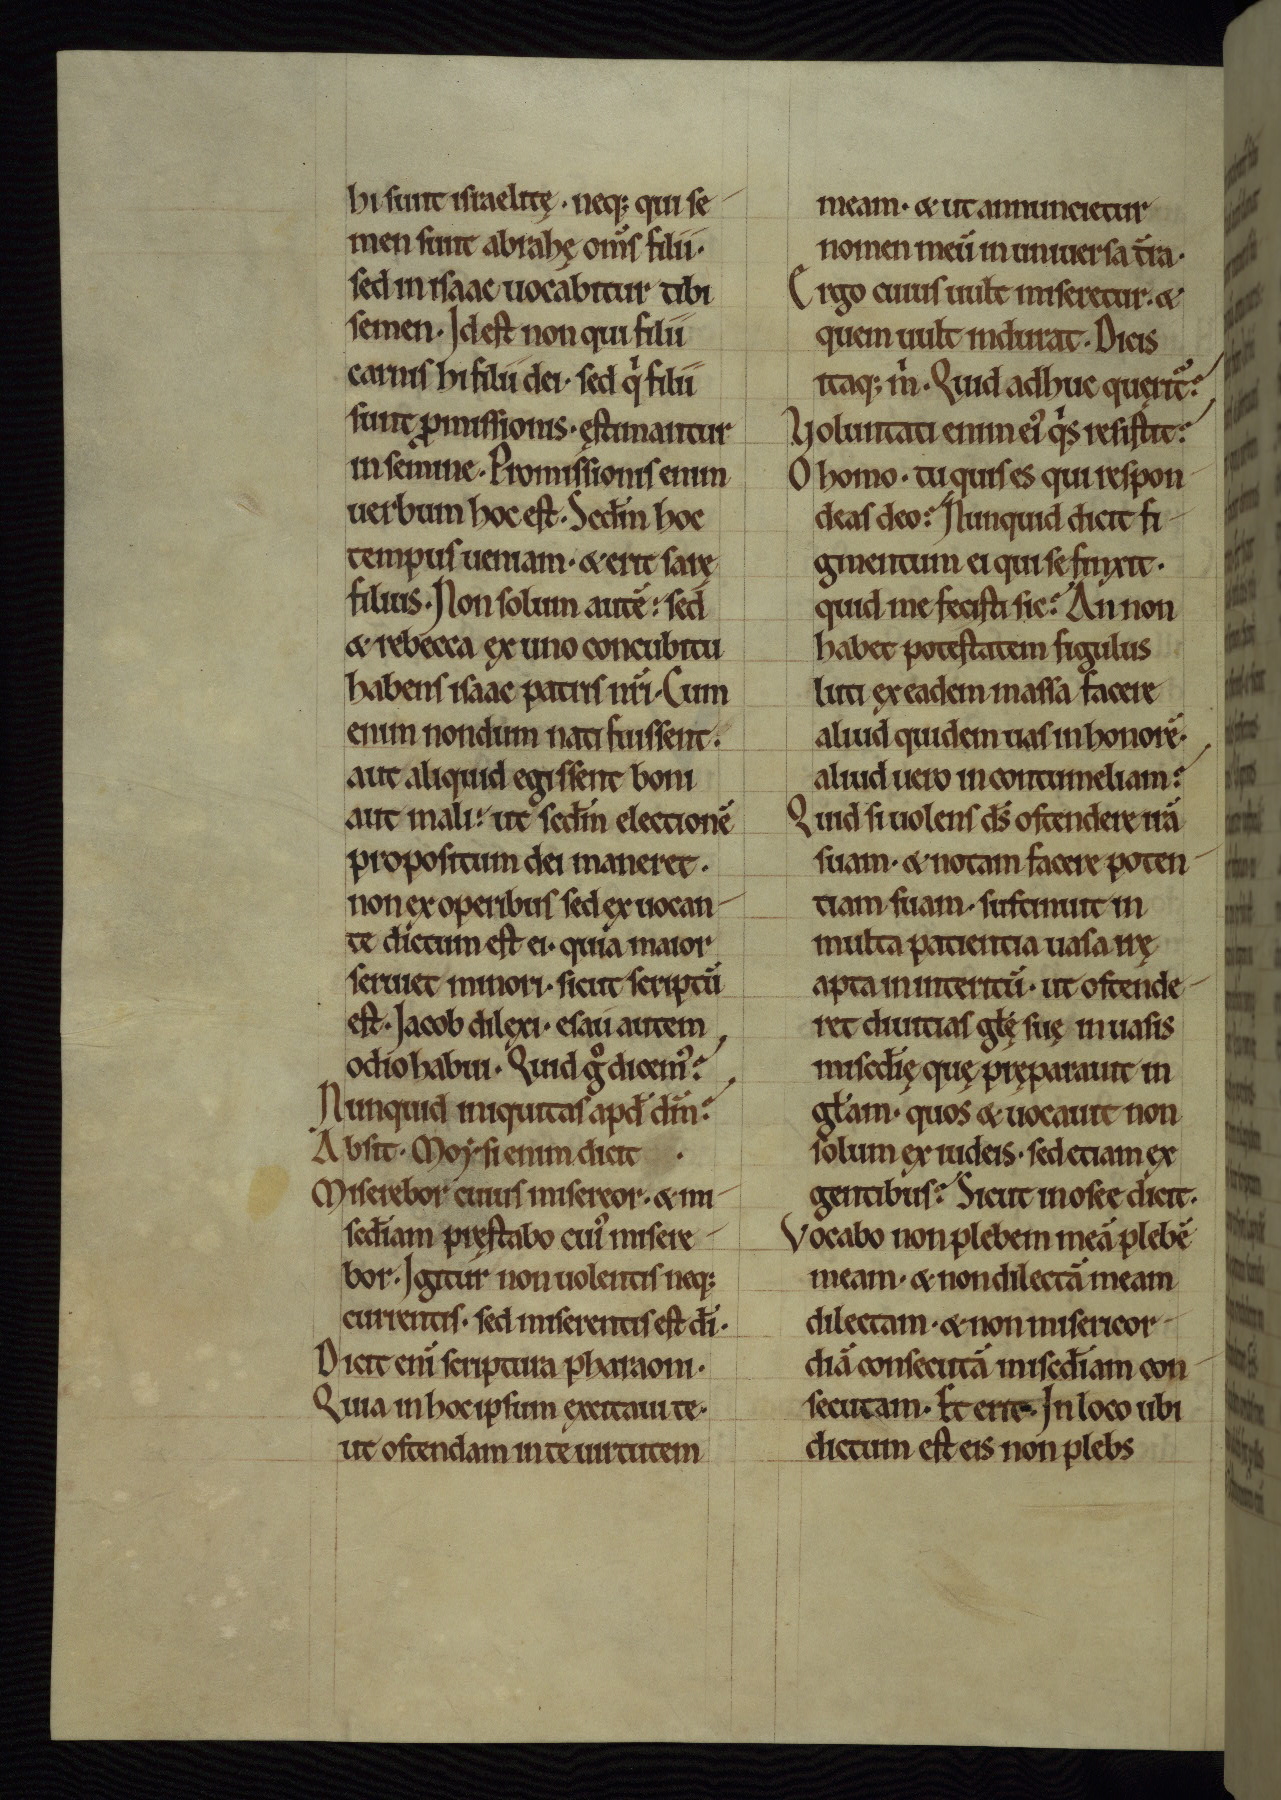 hi sunt israelitę · neq; qui se-
men sunt abrahę om̄s filii·
sed in isaac uocabitur tibi
semen· Id est non qui filii
carnis hi filii dei· sed q̇ filii
sunt ꝓmissionis· ęstimantur
in semine· Promissionis enim
uerbum hoc est· Scd̄m hoc
tempus ueniam· & erit sarę
filius· Non solum autē: sed
& rebecca ex uno concubitu
habens isaac patris nr̄i· Cum
enim nondum nati fuissent:
aut aliquid egissent boni
aut mali: ut scd̄m electionē
propositum dei maneret·
non ex operibus sed ex uocan-
te dictum est ei· quia maior
seruiet minori· sicut scriptū
est· Jacob dilexi· esau autem
odio habui· Quid gͦ dicemꝰ?
Nunquid iniquitas apd̄ dm̄?
Absit· Moysi enim dicit ·
Miserebor cuius misereor· & mi-
scd̄iam pręstabo cuiꝰ misere-
bor· Igitur non uolentis neq;
currentis· sed miserentis est dī·
Dicit enī scriptura pharaoni·
Quia in hoc ipsum excitaui te·
ut ostendam in te uirtutem
meam· & ut annuncietur
nomen meū in uniuersa tr̄a·
Ergo cuius uult miseretur· &
quem uult indurat· Dicis
itaq; ṁ· Quid adhuc querit᷑?
Voluntati enim eiꝰ q̇s resistit?
O homo· tu quis es qui respon-
deas deo? Nunquid dicit fi-
gmentum ei qui se finxit·
quid me fecisti sic? An non
habet potestatem figulus
luti ex eadem massa facere
aliud quidem uas in honorē·
aliud uero in contumeliam?
Quid si uolens ds̄ ostendere irā
suam· & notam facere poten-
tiam suam· sustinuit in
multa patientia uasa irę
apta in interitū· ut ostende-
ret diuitias gl̄ę suę in uasis
miscd̄ię quę pręparauit in
gl̄am· quos & uocauit non
solum ex iudeis· sed etiam ex
gentibus? Sicut in osee dicit·
Vocabo non plebem meā plebē
meam· & non dilectā meam
dilectam· & non misericor-
diā consecutā miscd̄iam con-
secutam· Et erit· In loco ubi
dictum est eis non plebs